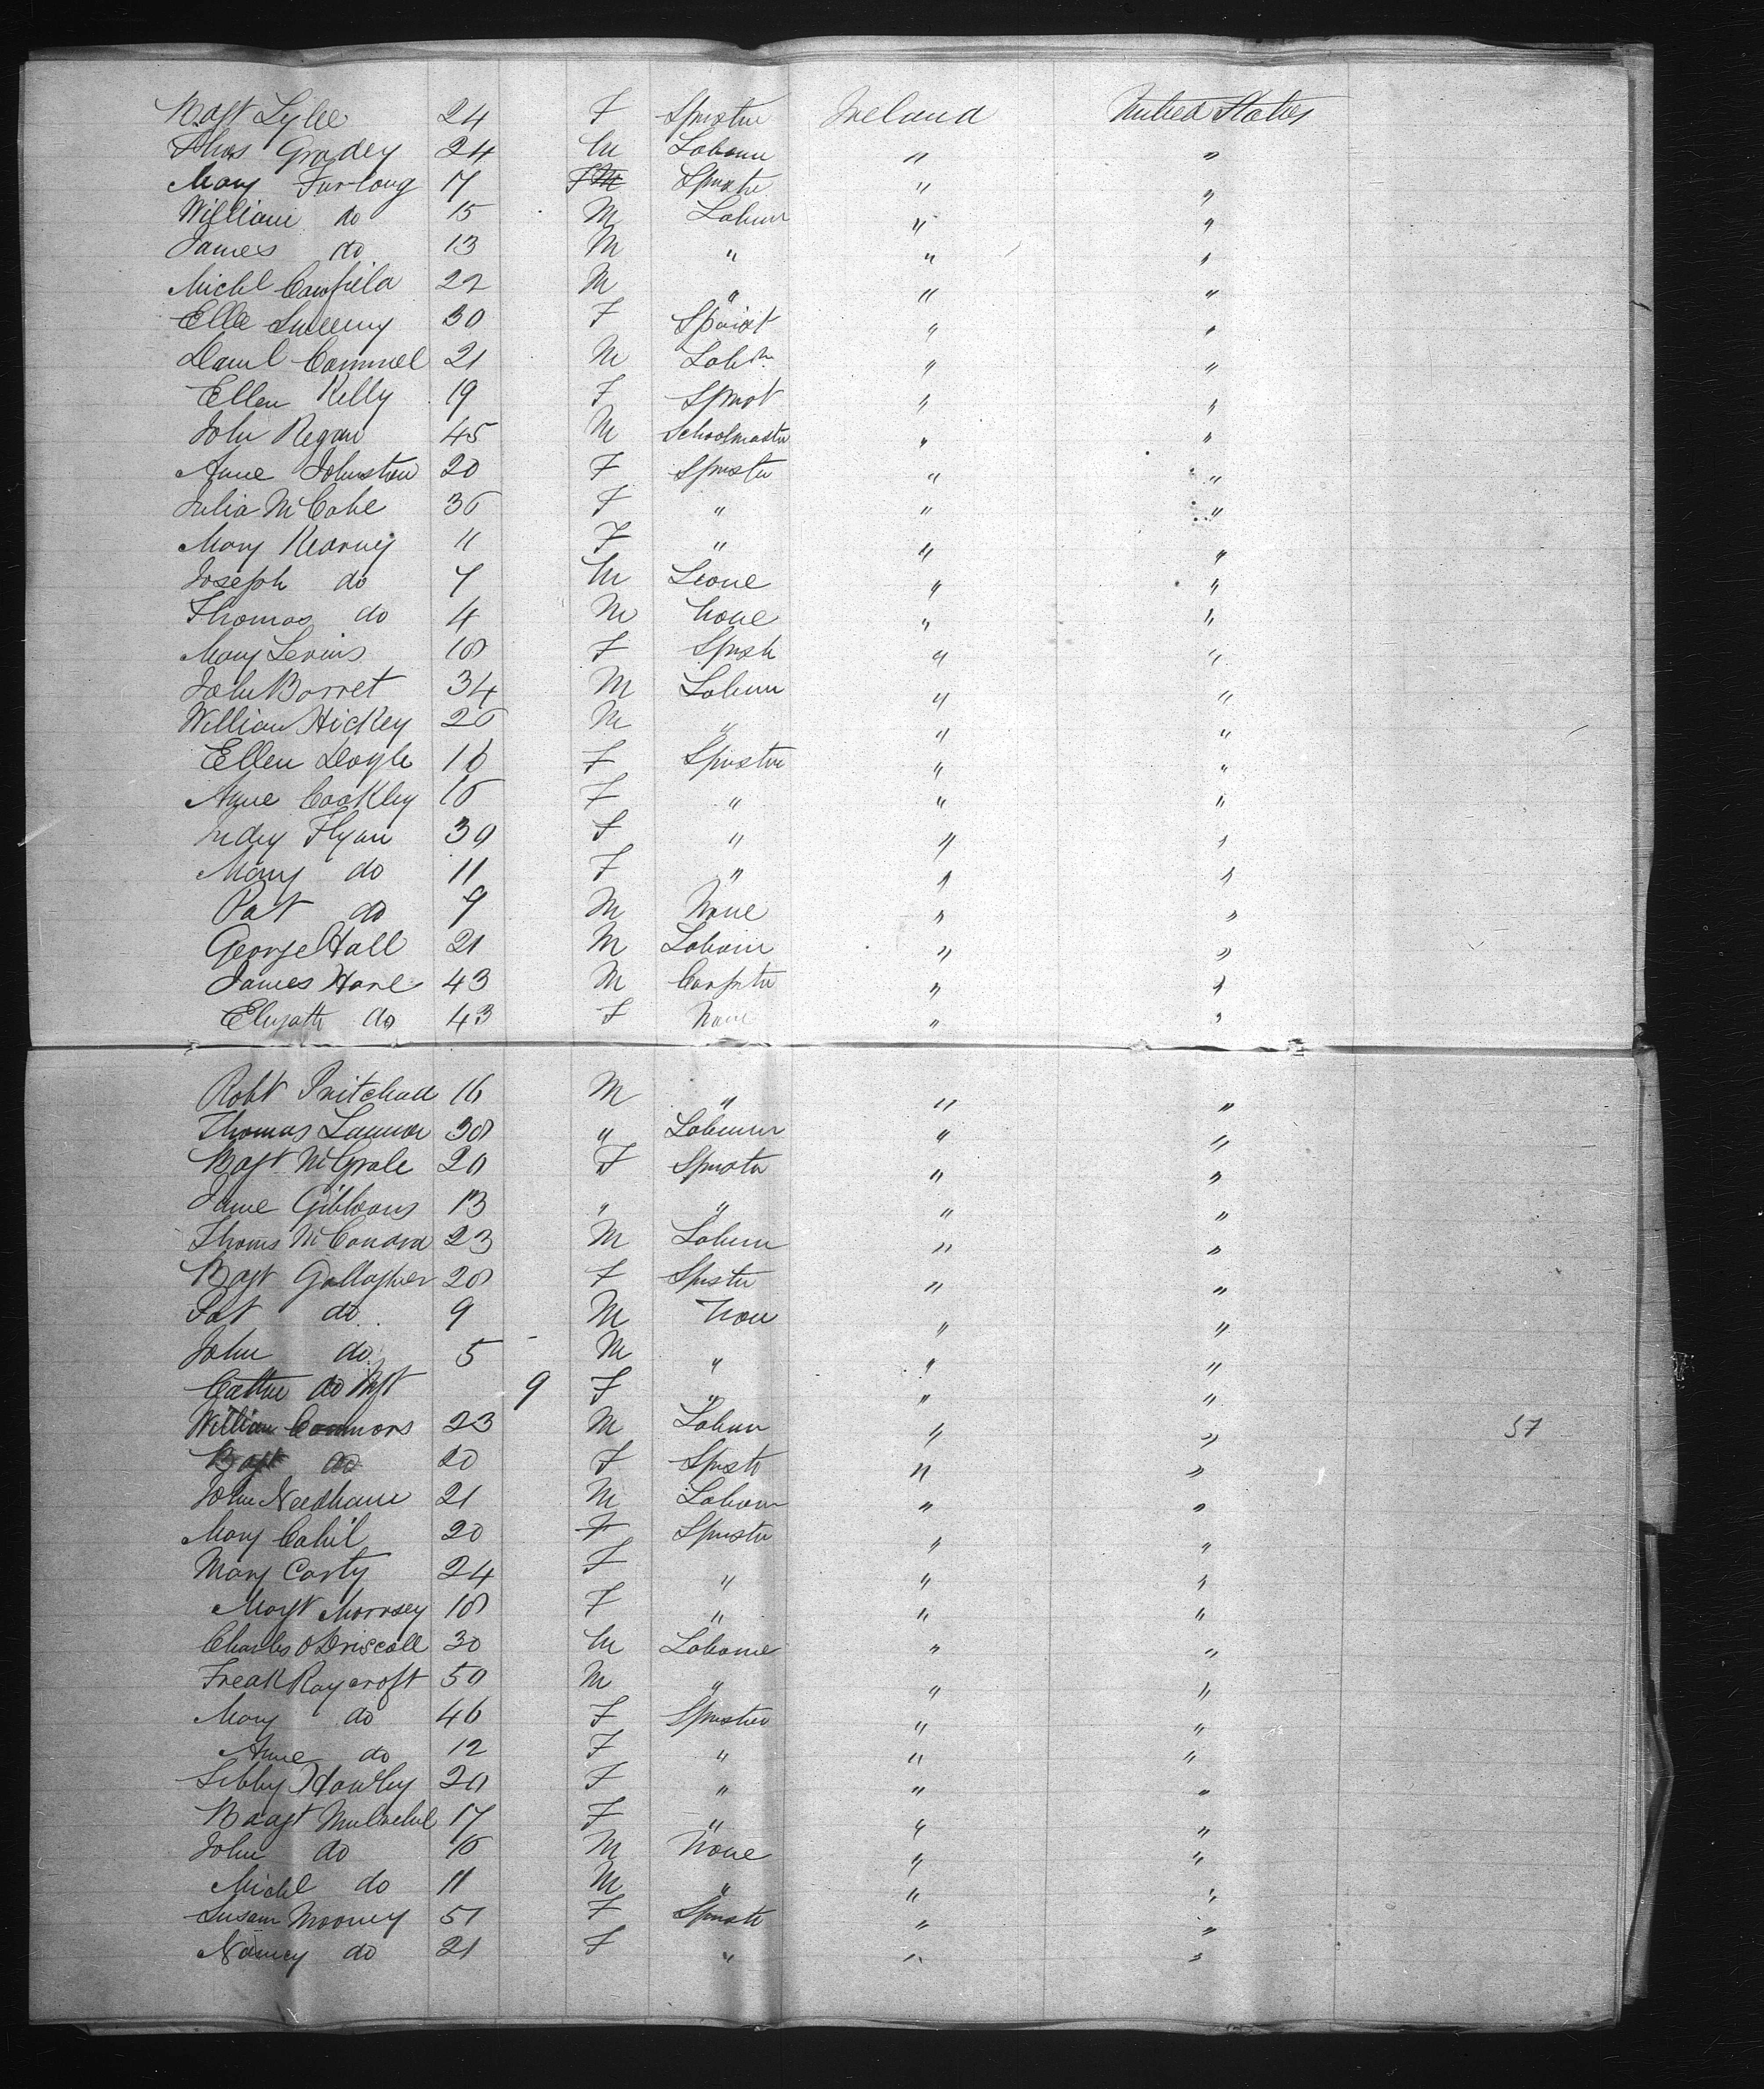 Magt Lylee 24 F Spinster Ireland United States
Thos Gradey 24 M Labourer " "
Mary Furlong 17 F Spinster " "
William do 15 M Labour " "
James do 13 M " " "
Michl Canfield 22 M " " "
Ellen Sweeny 30 F Spinst " "
Danl Commel 21 M Labr " "
Ellen Kelly 19 F Spinst " "
John Regan 45 M Schoolmaster " "
Anne Johnston 20 F Spinster " "
Julia McCabe 36 F " " "
Mary Kearney 11 F " " "
Joseph do 7 M None " "
Thomas do 4 M None " "
Mary Levins 18 F Spinst " "
John Barret 34 M Labour " "
William Hickey 26 M " " "
Ellen Doyle 16 F Spinster " "
Anne Coakley 16 F " " "
Judey Flynn 30 F " " "
Mary do 11 F " " "
Pat do 9 M None " "
George Hall 21 M Labour " "
James Hare 43 M Carpter " "
Elizath do 43 F None " "
Robt Pritchard 16 M " " "
Thomas Lannon 30 " Labourer " "
Magt McGrale 20 F Spinster " "
Jane Gibbons 13 " " " "
Thomas McCanara 23 M Labour " "
Magt Gallagher 28 F Spinster " "
Pat do 9 M None " "
John do 5 M " " "
Cathe do Inft 9 F " " "
William Connors 23 M Labour " " 57
Magt do 20 F Spinst " "
John Needham 21 M Labour " "
Mary Cahil 20 F Spinster " "
Mary Carty 24 F " " "
Margt Morrsey 18 F " " "
Charles O Driscoll 30 M Laboure " "
Freak Raycroft 50 M " " "
Mary do 46 F Spinster " "
Anne do 12 F " " "
Libby Hawley 20 F " " "
Magt 17 F " " "
John do 15 M None " "
Michl do 11 M " " "
Susan Mooney 51 F Spinster " "
Nancy do 21 F " " "